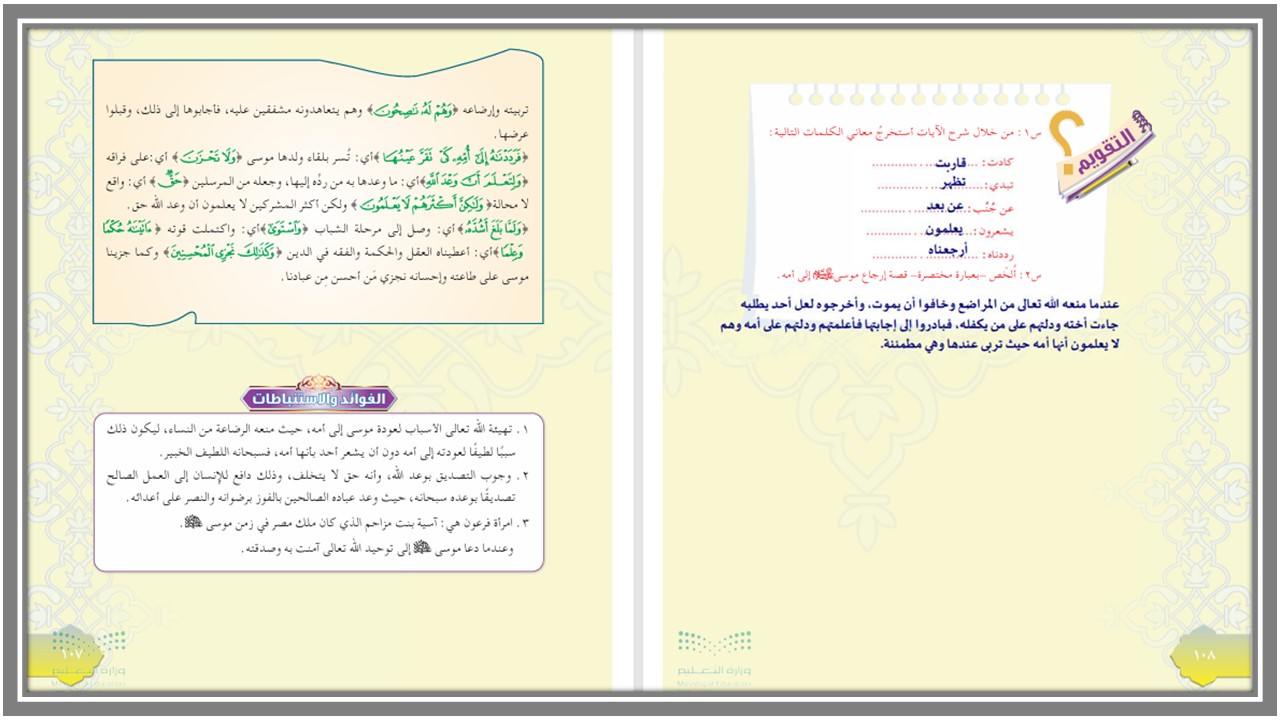 تربيته وإرضاعه ﴿وَهُمْ لَهُۥ نَٰصِحُونَ﴾ وهم يتعاهدونه مشفقين عليه، فأجابوها إلى ذلك، وقبلوا
عرضها.
﴿فَرَدَدْنَٰهُ إِلَىٰٓ أُمِّهِۦ كَىْ تَقَرَّ عَيْنُهَا﴾ أي: تُسر بلقاء ولدها موسى ﴿وَلَا تَحْزَنَ﴾ أي:على فراقه
﴿وَلِتَعْلَمَ أَنَّ وَعْدَ ٱللَّهِ﴾أي: ما وعدها به من ردِّه إليها، وجعله من المرسلين ﴿حَقٌّ﴾ أي: واقع
لا محالة﴿وَلَٰكِنَّ أَكْثَرَهُمْ لَا يَعْلَمُونَ﴾ ولكن أكثر المشركين لا يعلمون أن وعد الله حق.
﴿وَلَمَّا بَلَغَ أَشُدَّهُۥ﴾ أي: وصل إلى مرحلة الشباب ﴿وَٱسْتَوَىٰٓ﴾أي: واكتملت قوته ﴿ءَاتَيْنَٰهُ حُكْمًا
وَعِلْمًا﴾أي: أعطيناه العقل والحكمة والفقه في الدين ﴿وَكَذَٰلِكَ نَجْزِى ٱلْمُحْسِنِينَ﴾ وكما جزينا
موسى على طاعته وإحسانه نجزي مَن أحسن مِن عبادنا.
الفوائد والاستنباطات
١. تهيئة الله تعالى الأسباب لعودة موسى إلى أمه، حيث منعه الرضاعة من النساء، ليكون ذلك
سببًا لطيفًا لعودته إلى أمه دون أن يشعر أحد بأنها أمه، فسبحانه اللطيف الخبير.
٢. وجوب التصديق بوعد الله، وأنه حق لا يتخلف، وذلك دافع للإنسان إلى العمل الصالح
تصديقًا بوعده سبحانه، حيث وعد عباده الصالحين بالفوز برضوانه والنصر على أعدائه.
٣. امرأة فرعون هي: آسية بنت مزاحم الذي كان ملك مصر في زمن موسى عليه السلام.
وعندما دعا موسى عليه السلام إلى توحيد الله تعالى آمنت به وصدقته.
١٠٧
وزارة التعليم
Ministry of Education
التقويم
س١: من خلال شرح الآيات أستخرجُ معاني الكلمات التالية:
كادت: قاربت
تبدي: تظهر
عن جُنُب: عن بعد
يشعرون: يعلمون
رددناه: أرجعناه
س٢: أُلخّص -بعبارة مختصرة- قصة إرجاع موسى عليه السلام إلى أمه.
عندما منعه الله تعالى من المراضع وخافوا أن يموت، وأخرجوه لعل أحد يطلبه
جاءت أخته ودلتهم على من يكفله، فبادروا إلى إجابتها فأعلمتهم ودلتهم على أمه وهم
لا يعلمون أنها أمه حيث تربى عندها وهي مطمئنة.
١٠٨
وزارة التعليم
Ministry of Education